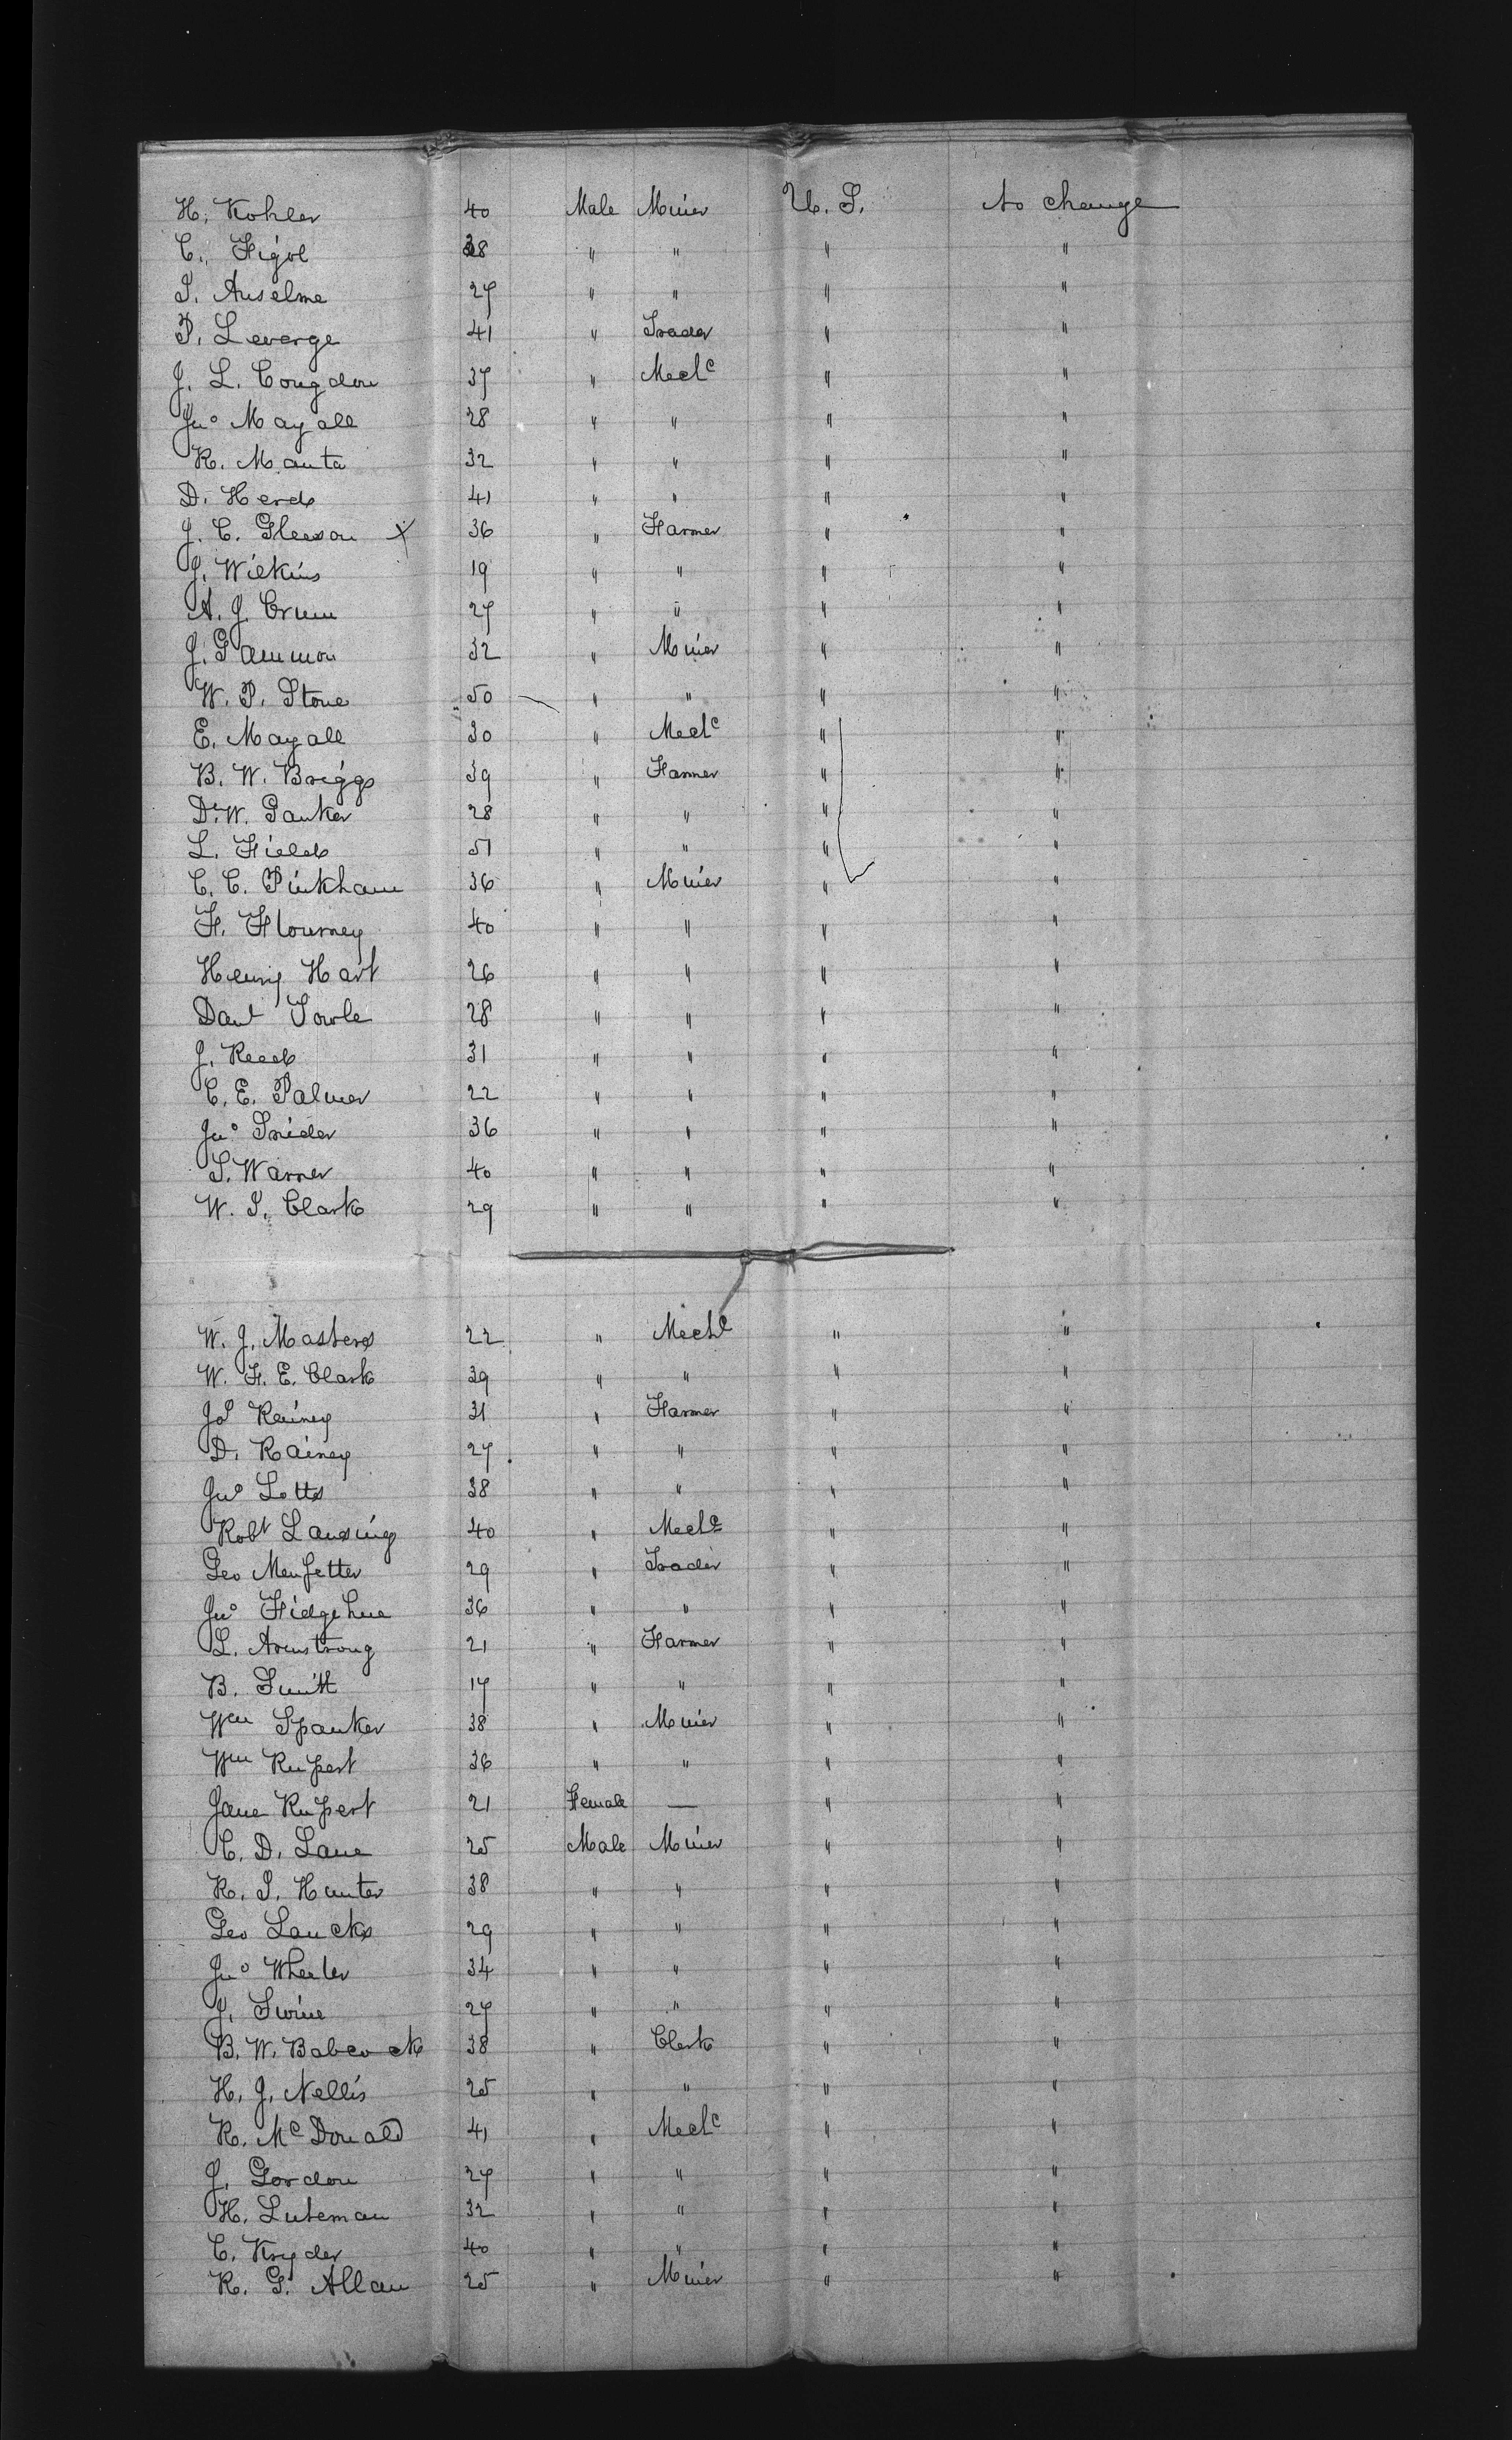 H. Kohler 40 Male Miner U. S. No change
C. Figol 38 " " " "
S. Anselme 27 " " " "
P. Leverge 41 " Trader " "
J. L. Congdon 37 " Mechc " "
Jno Mayall 28 " " " "
R. Manta 32 " " " "
D. Herd 41 " " " "
J. C. Gleeson X 36 " Farmer " "
J. Wilkins 19 " " " "
A. J. Crum 27 " " " "
J. Gammon 32 " Miner " "
W. P. Stone 50 " " " "
E. Mayall 30 " Mechc " "
B. W. Briggs 39 " Farmer " "
D. W. Panker 28 " " " "
L. Field 51 " " " "
C. C. Pinkham 36 " Miner " "
F. Flourney 40 " " " "
Henry Hart 26 " " " "
Danl Towle 28 " " " "
J. Reed 31 " " " "
C. E. Palmer 22 " " " "
Jno Snider 36 " " " "
S. Warner 40 " " " "
W. S. Clark 29 " " " "
W. J. Masters 22 " Mechc " "
W. F. E. Clark 39 " " " "
Jos Rainey 31 " Farmer " "
D. Rainey 27 " " " "
Jno Lotts 38 " " " "
Robt Lansing 40 " Mechc " "
Geo Menfetter 29 " Trader " "
Jno Fidgehue 36 " " " "
L. Armstrong 21 " Farmer " "
B. Smith 17 " " " "
Wm Spanker 38 " Miner " "
Wm Rupert 36 " " " "
Jane Rupert 21 Female — " "
C. D. Lane 25 Male Miner " "
R. S. Hunter 38 " " " "
Geo Laucks 29 " " " "
Jno Wheeler 34 " " " "
J. Swine 27 " " " "
B. W. Babcock 38 " Clerk " "
H. J. Nellis 25 " " " "
R. McDonald 41 " Mechc " "
J. Gordon 27 " " " "
H. Luteman 32 " " " "
C. Kryder 40 " " " "
R. G. Allan 25 " Miner " "